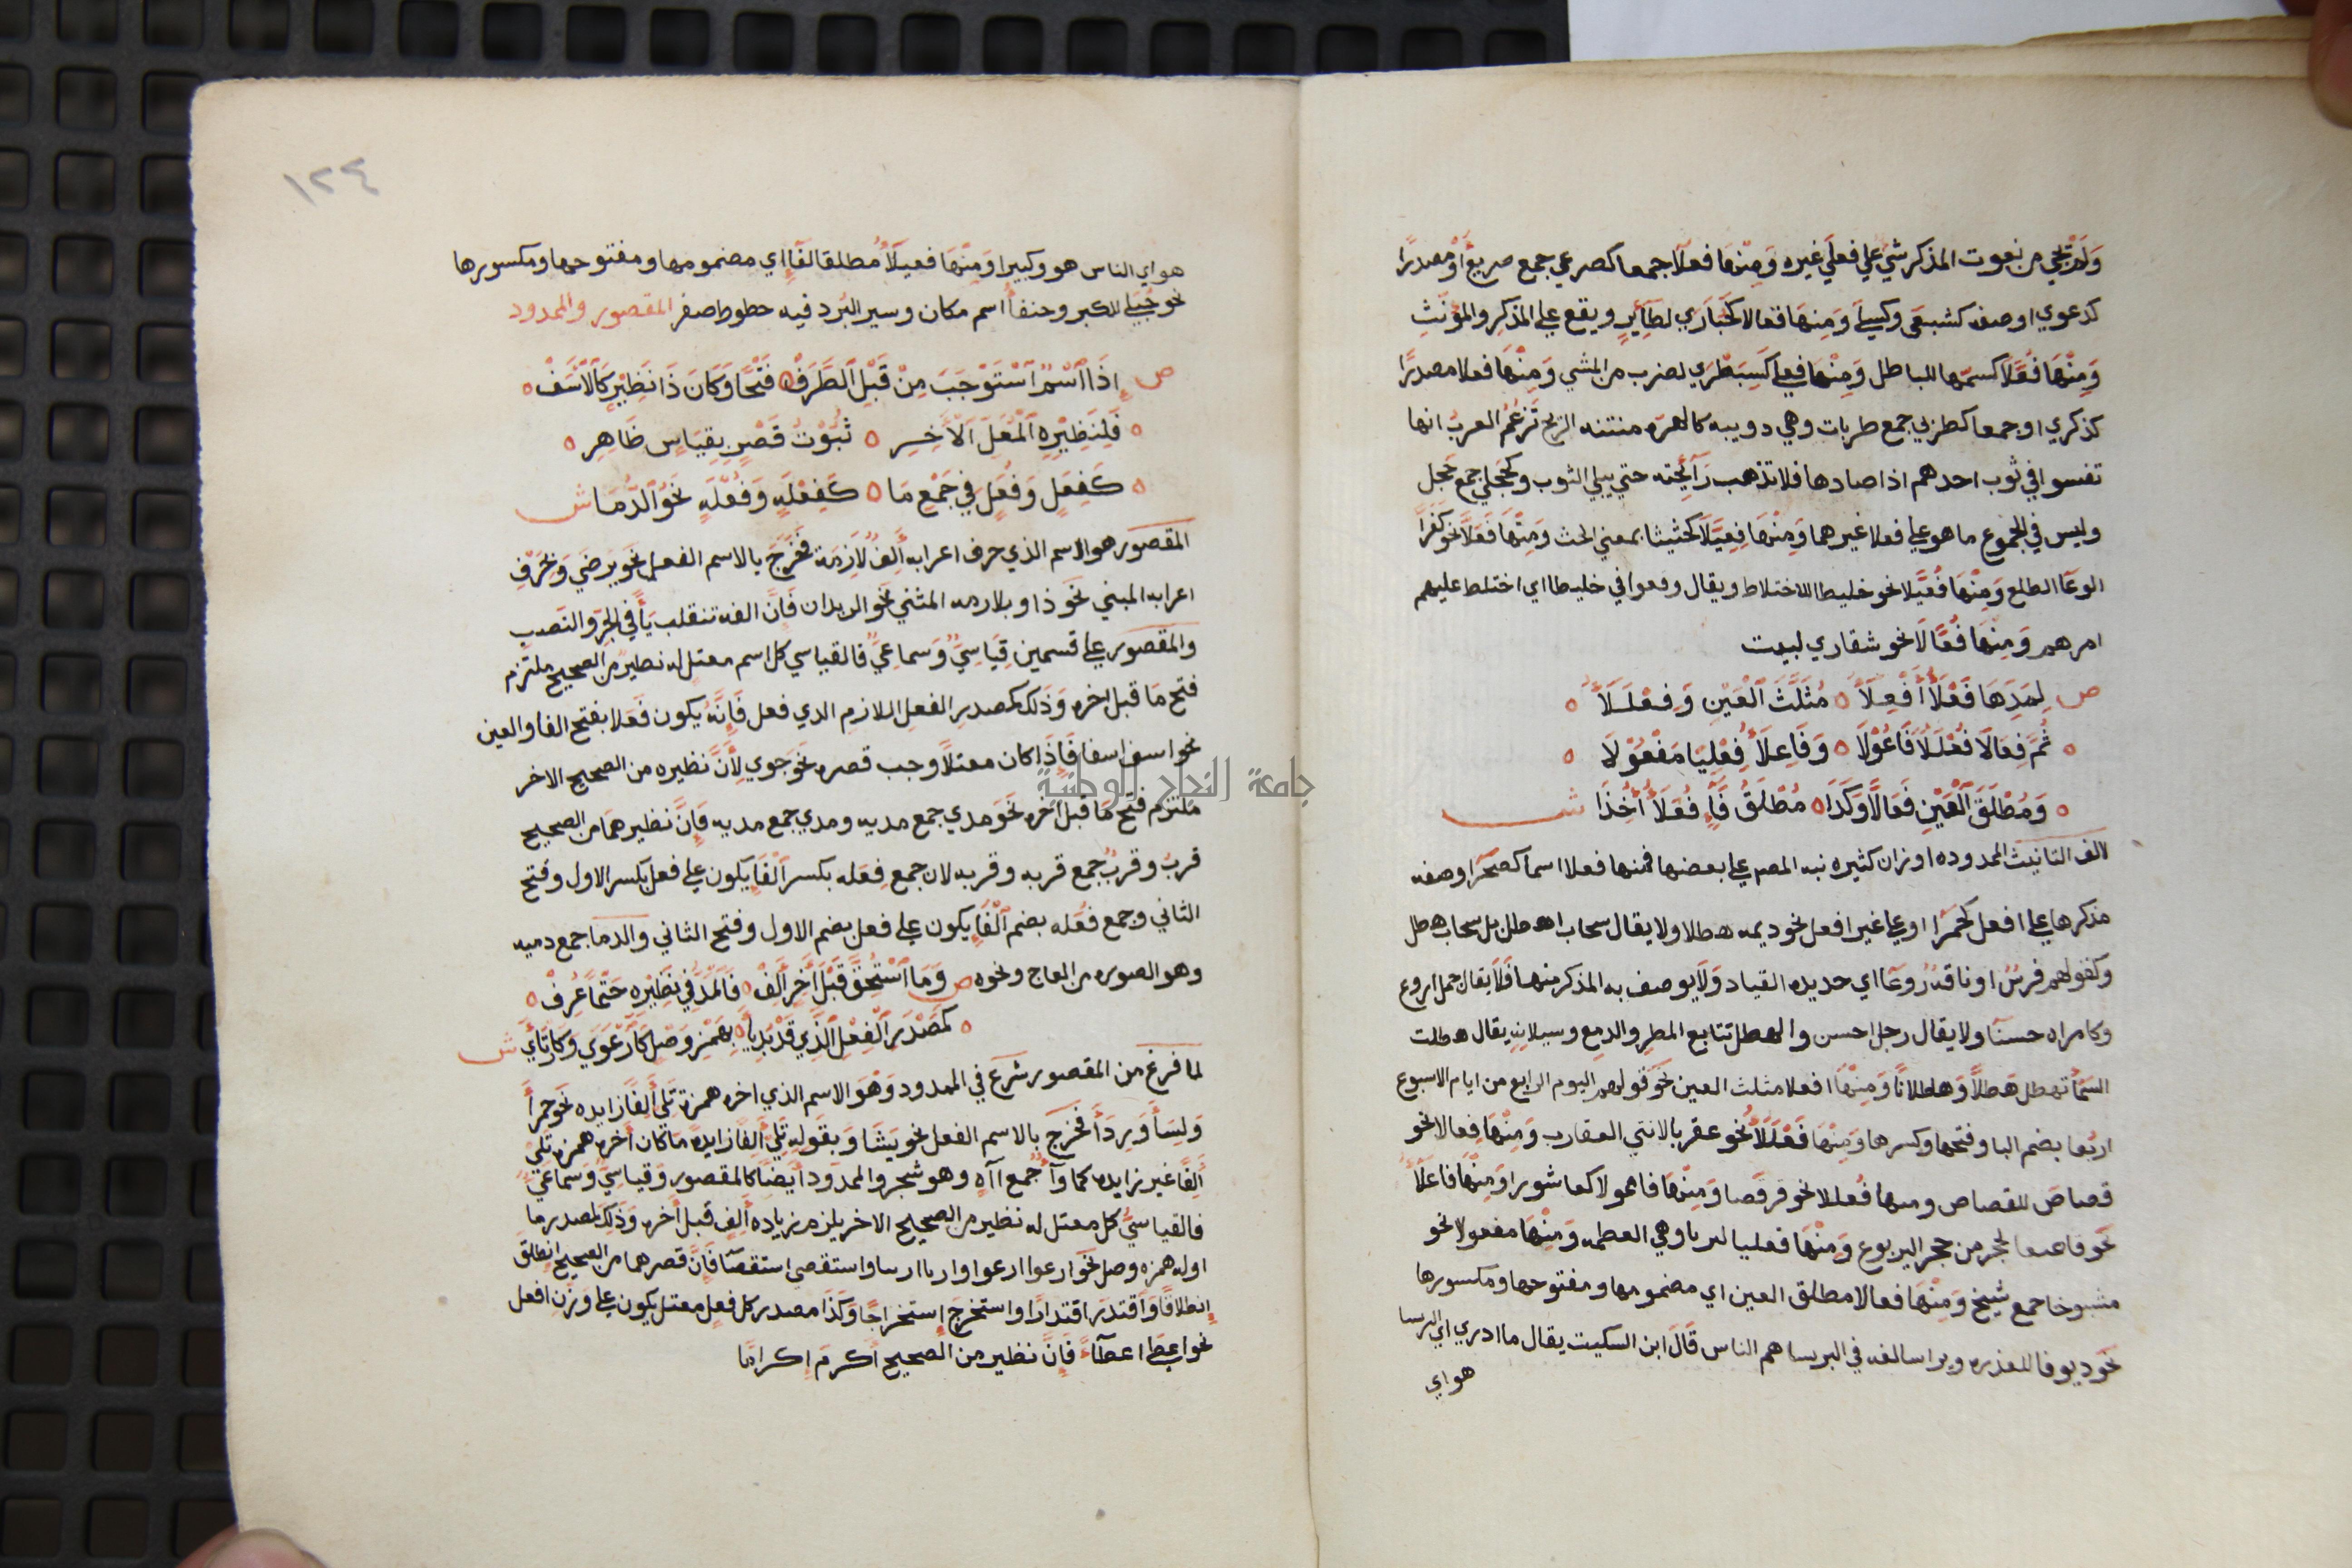 ولم تجي من نعوت المذكر شي علي فعلي غيره وَمِنْهَا فعلا جمعا كصرعي جمع صريع أَوْ مصدرًا
كدعوي او صفه كشبعي وكسلي وَمِنهَا فعالا كحُبَارَي لطَآيرٍ ويقع علي المذكِر والمؤنثِ
وَمِنْهَا فُعَّلا كسمّها للباطل وَمِنْهَا فِعَلي كَسِبَطْرَي لضرب من المشي وَمِنْهَا فعلا مصدرًا
كذكري او جمعا كظربي جمع ظربات وهي دويبه كالهرّه منتنه الريح تَزعُمُ العربُ انها
تفسوا في ثوب احدهم اذا صادها فلا تذهب رَآيحته حتي يبلي الثوب وكحجلي جمع حَجل
وليس في الجموع ما هو علي فعلا غيرهما وَمِنْهَا فِعِيَّلَا كحثيثا بمعني الحث ومِنْهَا فُعَلَّا نحو كُفَرَّا
الوعَا الطلع وَمِنْهَا فُعَّيلا نحو خليطا للاختلاط ويقال وقعوا في خليطا اي اختلط عليهم
امرهم وَمِنْهَا فُعَّالَا نحو شقاري لنبت
ص لِمَدِهَا فَعْلَاءُ أَفْعِلَاءُ مُثَلَّثَ الْعَيْنِ وَفَعْلَلَاءُ
ثُمَّ فِعَالَا فُعْلُلَا فَاعُوْلَا وَفَاعِلَاءُ فِعْلِيَا مَفْعُوْلَا
وَمُطْلَقَ الْعَيْنِ فَعَالَا وَكَذَا مُطْلَقُ فَاءٍ فُعَلَاءُ أُخِذَا ش
لالف التانيث الممدوده اوزان كثيره نبه المصم علي بعضها فمنها فعلا اسما كصحَرا وصفه
مذكرها علي افعل كحمَرا او علي غير افعل نحو ديمه هطلا ولا يقال سحاب اهطل بل سحاب هطل
وكقولهم فرسٌ او ناقه رُوعَا اي حديده القياد وَلَا يوصف به المذكر منها فَلَا يقال جمل اروع
وكامراه حسنَا ولا يقال رجل احسن والهطل تتابع المطر والدمع وسيلانه يقال هطلت
السمَا تهطل هَطلًا وَهطلانًا وَمِنْهَا افعلا مثلث العين نحو قولهم اليوم الرابع من ايام الاسبوع
اربُعا بضم البا وفتحها وكسرها وَمِنْهَا فَعْلَلَاءُ نحو عقربا لانثي العقارب وَمِنْهَا فِعالا نحو
قصاصَ للقصاص ومنها فُعللا نحو قرفصا وَمِنْهَا فاعولا كعاشورا وَمِنْهَا فاعَلَا
نحو قاصعا لحجر من حجر اليربوع وَمِنْهَا فعليا كبريا وهي العظمه وَمِنْهَا مفعولا نحو
مشيوخا جمع شيخ وَمِنْهَا فعالا مطلق العين اي مضمومها ومفتوحها ومكسورها
نحو دبوقا للعذره وبراسا لغه في البرنسا هم الناس قَالَ ابن السكيت يقال ما ادري اي البرنسا
هو اي
١٢٤
هو اي الناس هو وكبيرا وَمِنْهَا فعيلاءُ مُطلقا الفَآ اي مضمومها ومفتوحها ومكسورها
نحو خيلي للكبر وحنفاُ اسم مكان وسير البُرد فيه خطوط اصفر المقصور والممدود
ص إِذَا اسْمٌ اسْتَوْجَبَ مِنْ قَبْلِ الطَّرَفْ فَتْحًا وَكَانَ ذَا نَظِيْرٍ كَالْأَسَفْ
فَلِنَظِيْرِهِ الْمُعَلِّ الْأَخِرِ ثُبُوْتُ قَصْرٍ بِقِيَاسٍ ظَاهِرِ
كَفِعَلٍ وَفُعَلٍ فِي جَمْعِ مَا كَفِعْلَةٍ وَفُعْلَةٍ نَحْوُ الدُّمَا ش
المقصور هو الاسم الذي حرف اعرابه أَلِفٌ لَازِمَة فخَرَجَ بالاسم الفعل نحو يرضي وَبحَرْفِ
اعرابه المبني نحو ذا وبلازمه المثني نحو الزيدان فَانَّ الفه تنقلب يَآً في الجرّ والنصب
والمقصور علي قسمين قِيَاسِيٌّ وَسماعيٌّ فالقياسي كل اسم معتل له نظير من الصحيح ملتزم
فتح مَا قبل اخره وَذَلك كمصدر الفعلِ اللازمِ الذي فعل فَإِنَّهُ يكون فَعَلا بفتح الفا والعين
نحو اسف اسفا فَإِذَا كان معتلًا وجب قصره نحو جَوي لأَنَّ نظيره من الصحيح الاخر
ملتزم فتح مَا قبل أخره نَحو مدي جمع مديه ومدي جمع مديه فَإِنَّ نظيرهما من الصحيح
قرب وقربٌ جمع قربه وقربه لان جمع فِعَله بكسر الْفَا يكون علي فعل بكسر الاول وَفتح
الثاني وجمع فُعَله بضم الْفَا يكون علي فعل بضم الاول وفتح الثاني والدما جمع دميه
وهو الصوره من العاج ونحوه ص وَمَا اسْتَحَقَّ قَبْلَ أَخِرٍ أَلِفْ فَالْمَدُّ فِي نَظِيْرِهِ حَتْمًا عُرِفْ
كَمَصْدَرِ الْفِعْلِ الَّذِي قَدْ بُدِئَا بِهَمْزِ وَصْلٍ كَارْعَوَي وَكَارْتَأَي ش
لما فرغ من المقصور شرع في الممدود وَهْوَ الاسم الذي اخره همزة تَلِي أَلِفًا زايده نحو حمرأَ
وَلِسَا وَرِدَاً فخرج بالاسم الفعل نحو يشَا وَبقوله تَلِي أَلِفًا زايدهً مَا كان أخره همزه تلي
أَلِفًا غير زايده كما وآءُ جمع ااه وهو شجر والممدُود أَيضًا كالمقصورِ وَقياسيٌّ وَسماعيٌّ
فالقياسيُّ كل معتل له نظير من الصحيح الاخر يلزم زياده أَلِفٍ قبل أخره وَذَلك كمصدر ما
اوله همزه وصل نحو ارعوا ارعوا وارياا ارسا واستقصي استقصآ فَإِنَّ قصرهما من الصحيح انطلق
إِنطلاقًا وَاقتدرَ اقتدارًا واستخرجَ إِستخراجًا وَكَذَا مصدر كل فعلٍ معتل يكون علي وَزن افعل
نحو اعطي اعطآءً فَإِنَّ نظير من الصحيح أكرمَ إِكرامًا
جامعة النجاح الوطنية